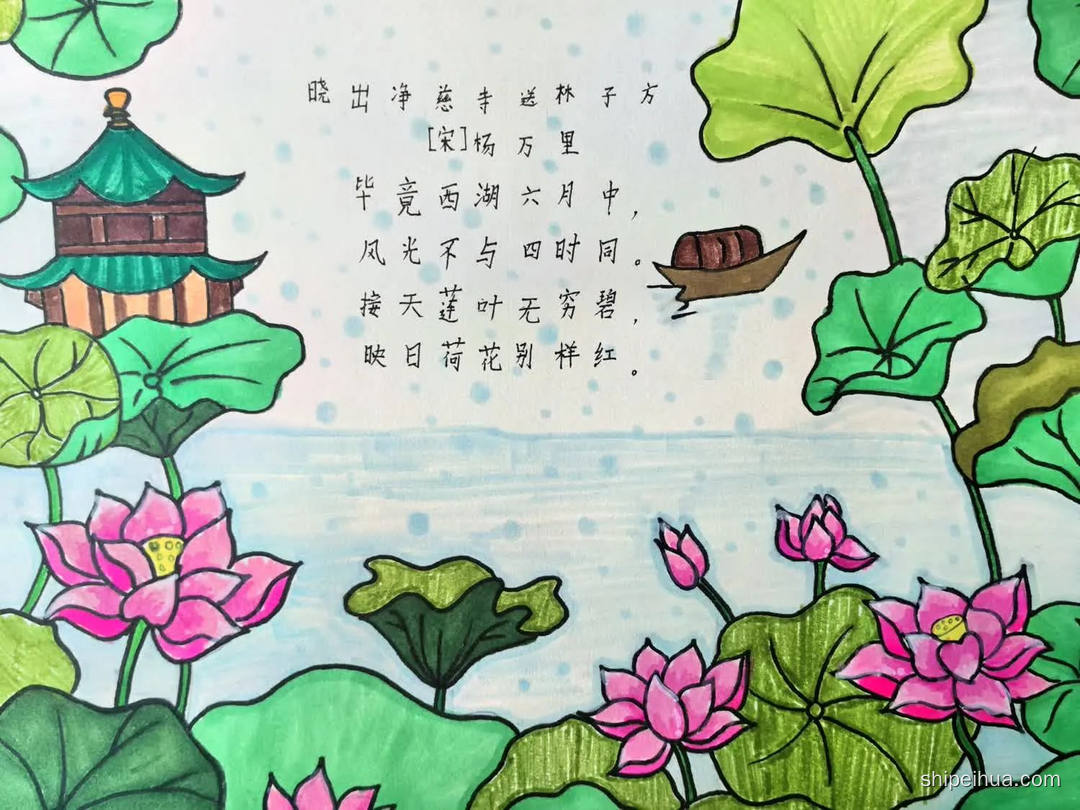 晓出净慈寺送林子方
[宋]杨万里
毕竟西湖六月中，
风光不与四时同。
接天莲叶无穷碧，
映日荷花别样红。
shipeihua.com